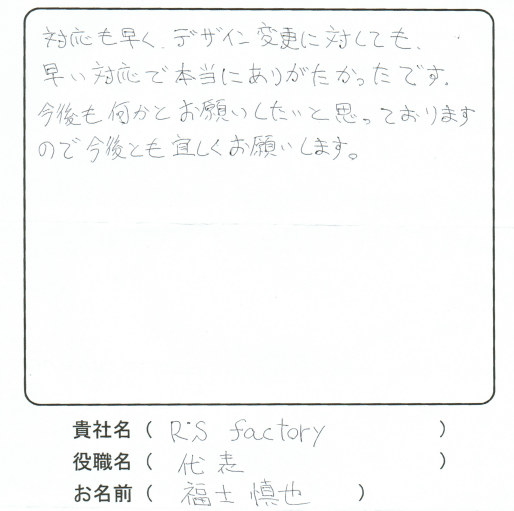 対応も早く、デザイン変更に対しても、
早い対応で本当にありがたかったです。
今後も何かとお願いしたいと思っております
ので今後とも宜しくお願いします。
貴社名（ R's factory ）
役職名（ 代表 ）
お名前（ 福士 慎也 ）